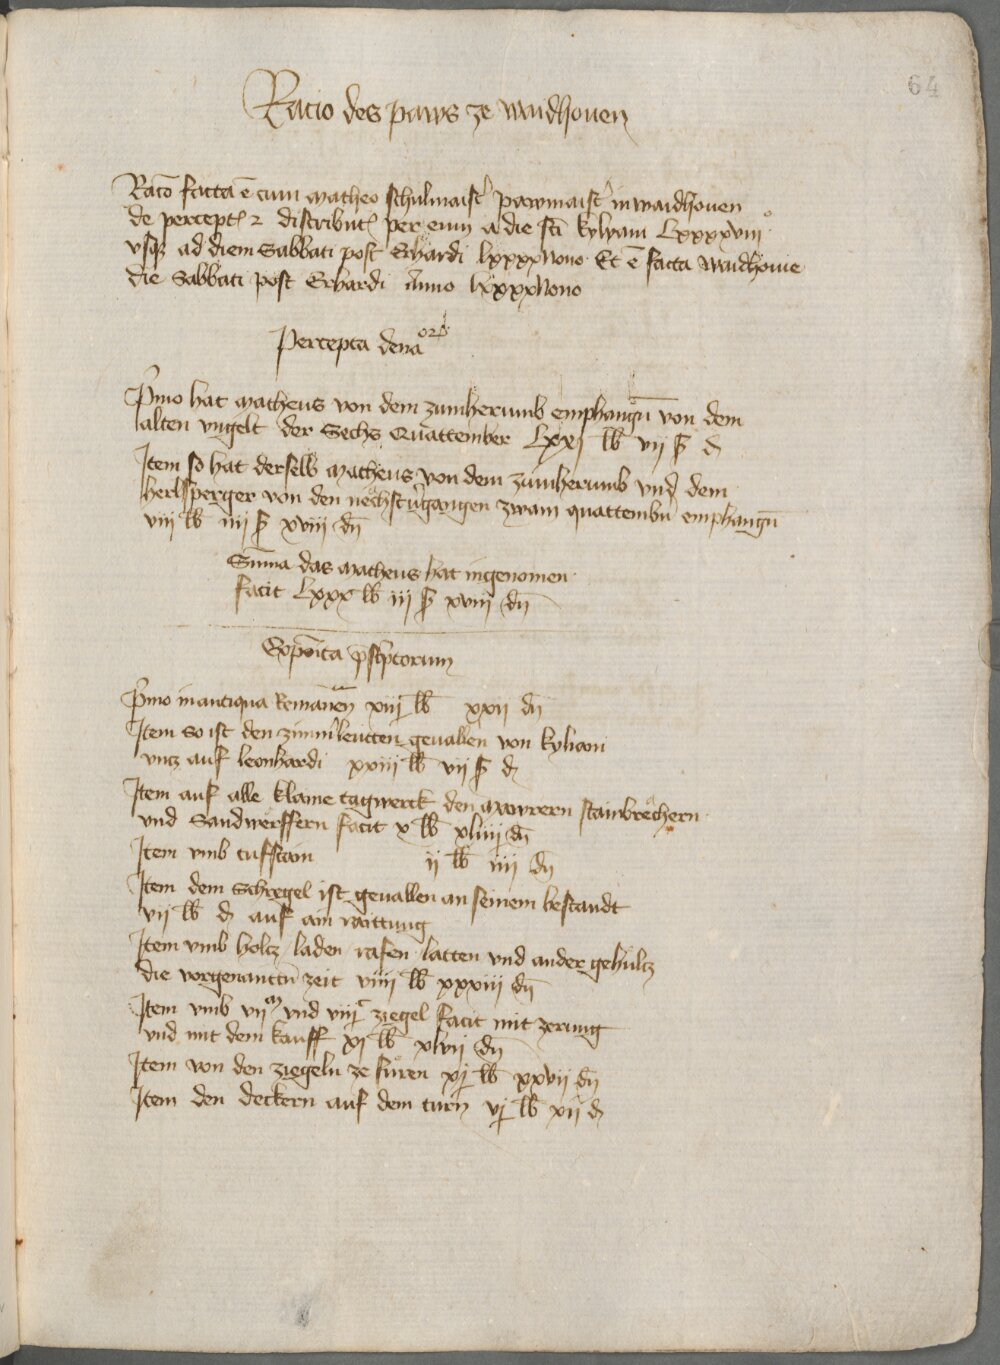 64
Racio des paws ze waidhouen
Racō facta ē cum Matheo schulmaist' pawmaist' in waidhouen
de percept' et distribut' per eum a die sci Kylyani Lxxxxviii°
vsq ad diem Sabbati post Erhardi lxxxxNono Et ē facta waidhouie
die Sabbati post Erhardi Anno lxxxxNono
Percepta dena orum
P'mo hat Matheus von dem zumherumb emphangn̄ von dem
alten vngelt der Sechs Quattember Lxxj lb vij ß d
Item so hat derselb Matheus von dem zumherumb vnd dem
herlsperger von den nechstu'gangen zwain quattemb'n emphangn̄
viij lb iiij ß xviij dn̄
Sūma das Matheus hat ingenomen
facit Lxxx lb iij ß xviij dn̄
Exposita p'sc'ptorum
P'mo in antiqua Remanen xiiij lb xxij dn̄
Item So ist den zim'leutten geuallen von kyliani
vncz auf leonhardi xxiij lb vij ß d
Item auf alle klaine tagwerck den mawrern stainbrechern
vnd Sandwerffern facit x lb xliiij dn̄
Item vmb tuffstain ij lb iiij dn̄
Item dem Schregel ist geuallen an seinem bestandt
vij lb d auf ain raittung
Item vmb holcz laden rafen latten vnd ander gehulcz
die vorgenanttn̄ zeit viiij lb xxxiij dn̄
Item vmb vij m vnd viij c ziegel facit mit zerung
vnd mit dem kauff xj lb xlvij dn̄
Item von den ziegeln ze furen xj lb xxvij dn̄
Item den deckern auf dem turn vj lb xij d